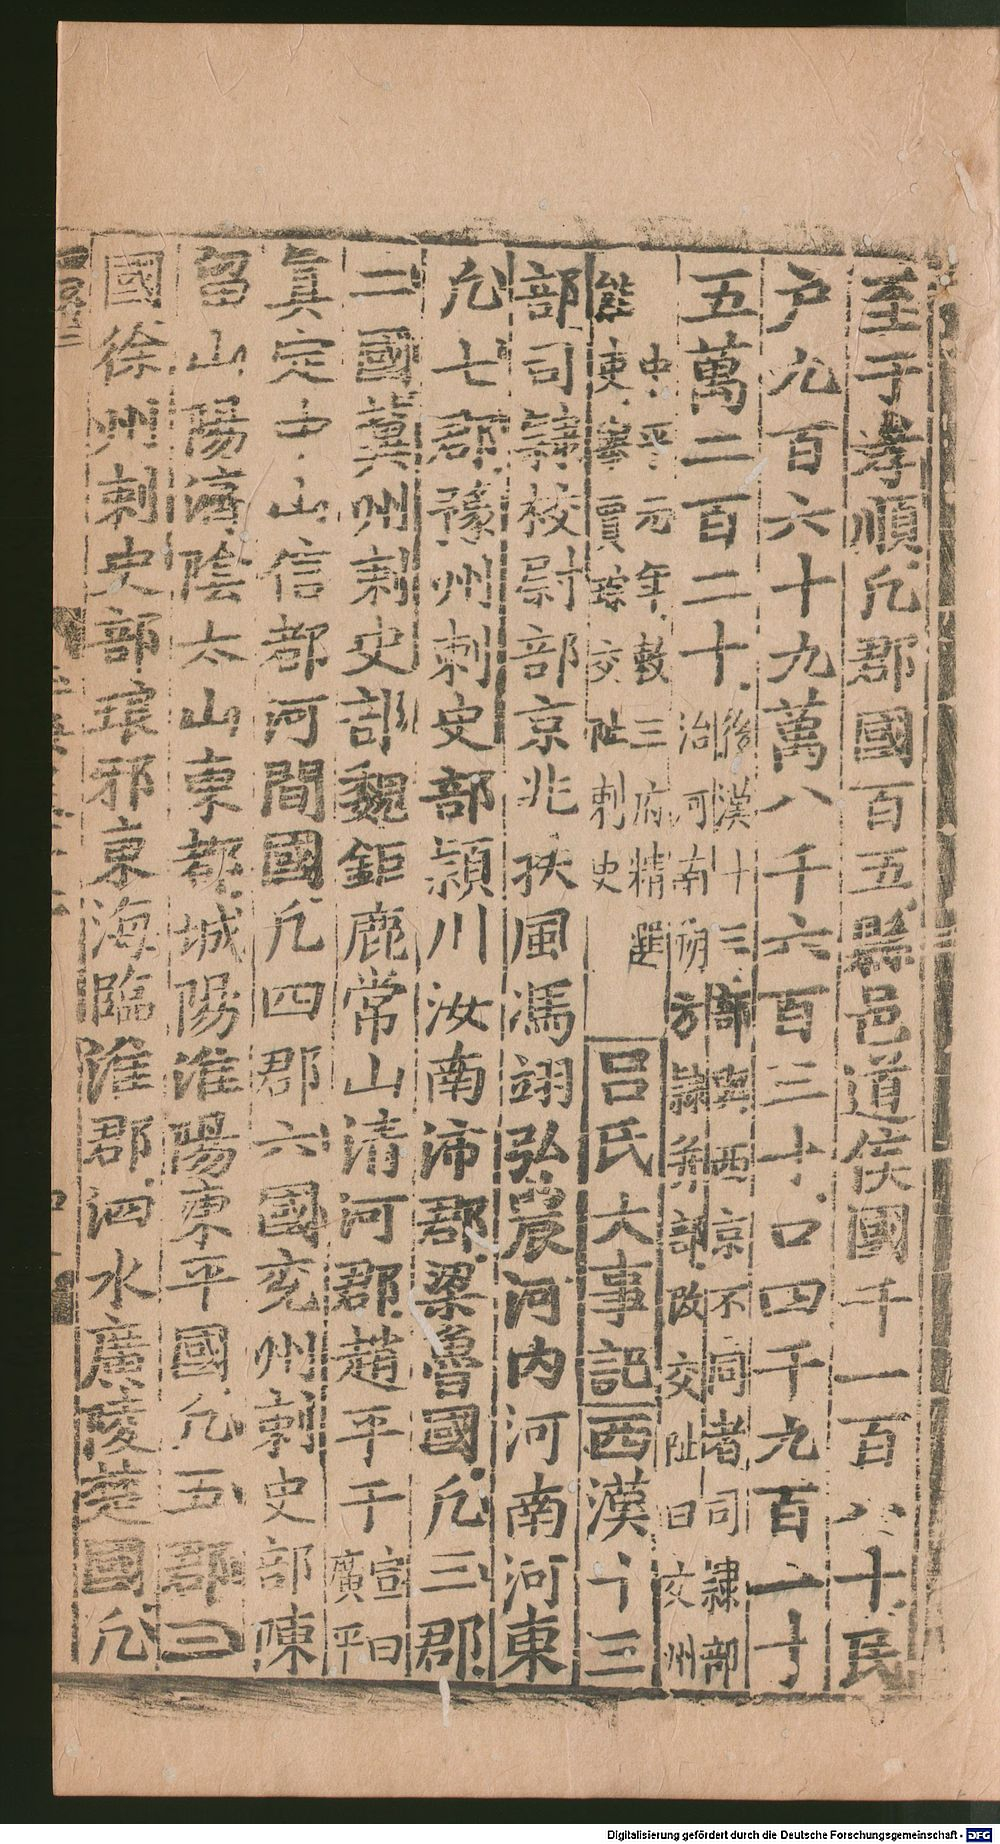 至于孝順凢郡國百五縣邑道侯國千一百八十民
户九百六十九萬八千六百三十口四千九百一十
五萬二百二十後漢十三部與西京不同者司隸部
治河南朔方隸并部改交阯曰交州
中平元年敕三府精選
能吏宰賈琮交阯刺史呂氏大事記西漢十三
部司隷校尉部京兆扶風馮翊弘農河内河南河東
凢七郡豫州刺史部潁川汝南沛郡梁魯國凢三郡
二國冀州刺史部魏鉅鹿常山清河郡趙平干宣曰
廣平
真定中山信都河間國凢四郡六國兖州刺史部陳
留山陽濟隂太山東都城陽淮陽東平國凢五郡三
國徐州刺史部琅邪東海臨淮郡泗水廣陵楚國凢
Digitalisierung gefördert durch die Deutsche Forschungsgemeinschaft - DFG